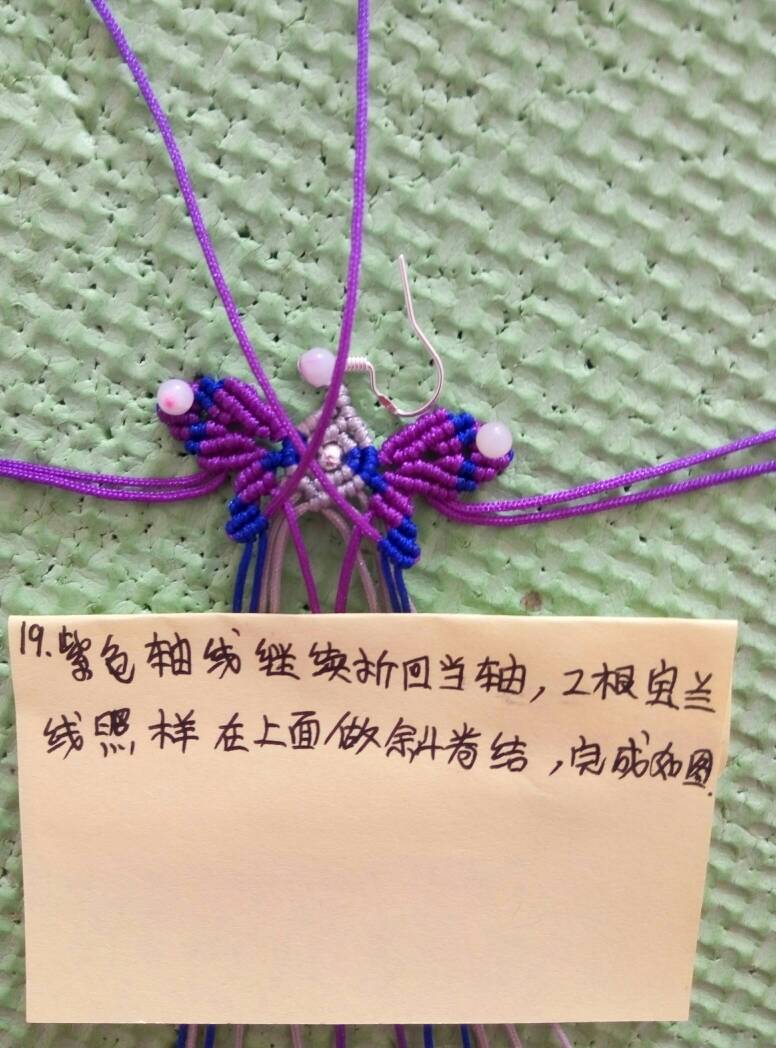 19.紫色轴线继续折回当轴,2根宝兰
线照样在上面做斜卷结,完成如图.